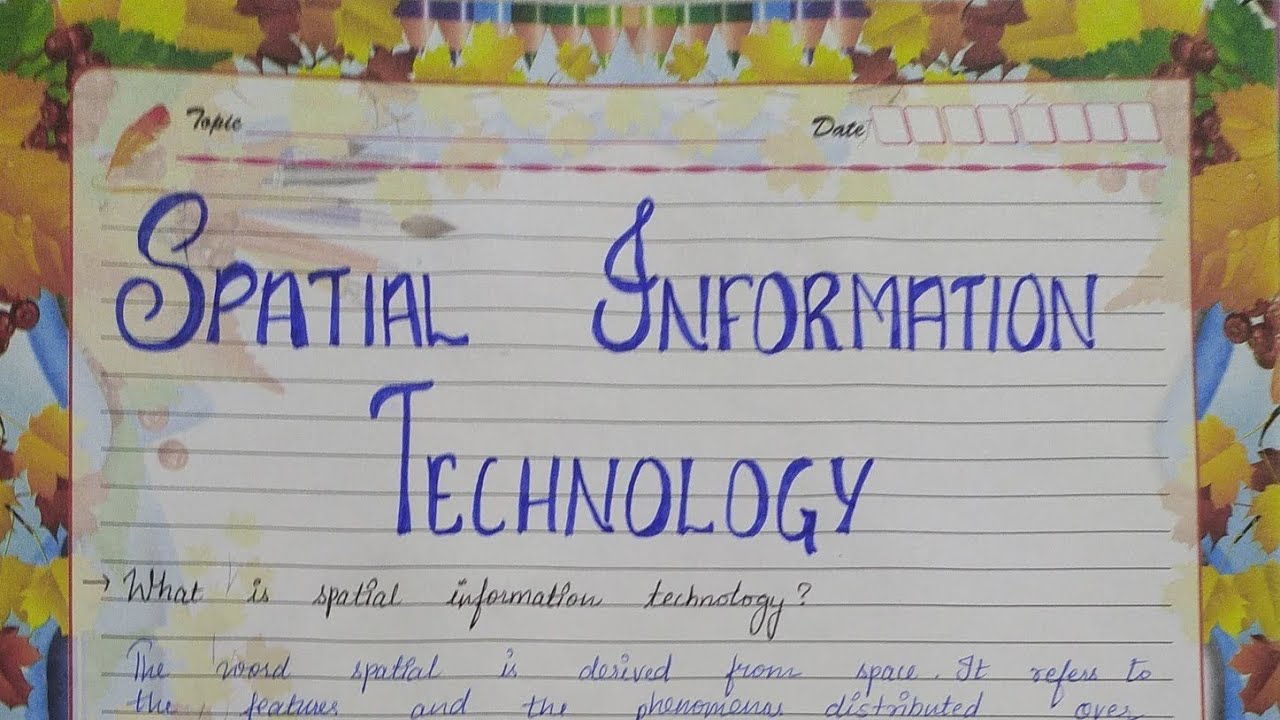 Topic
Date
SPATIAL INFORMATION
TECHNOLOGY
→ What is spatial information technology?
The word spatial is derived from space. It refers to
the features and the phenomena distributed over